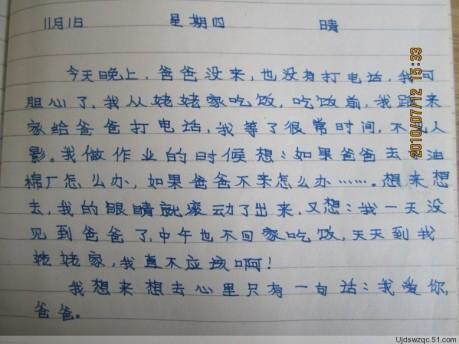 11月1日 星期四 晴
今天晚上,爸爸没来,也没有打电话,我可
胆心了,我从姥姥家吃饭,吃饭前,我跑来
家给爸爸打电话,我等了很常时间,不见人
影。我做作业的时候想:如果爸爸去 油
棉厂怎么办,如果爸爸不来怎么办……。想来想
去,我的眼睛就滚动了出来,又想:我一天没
见到爸爸了,中午也不回家吃饭,天天到我
姥姥家,我真不应该啊!
我想来想去心里只有一句话:我爱你,
爸爸。
2010/07/12 15:33
Ujdswzqc.51.com